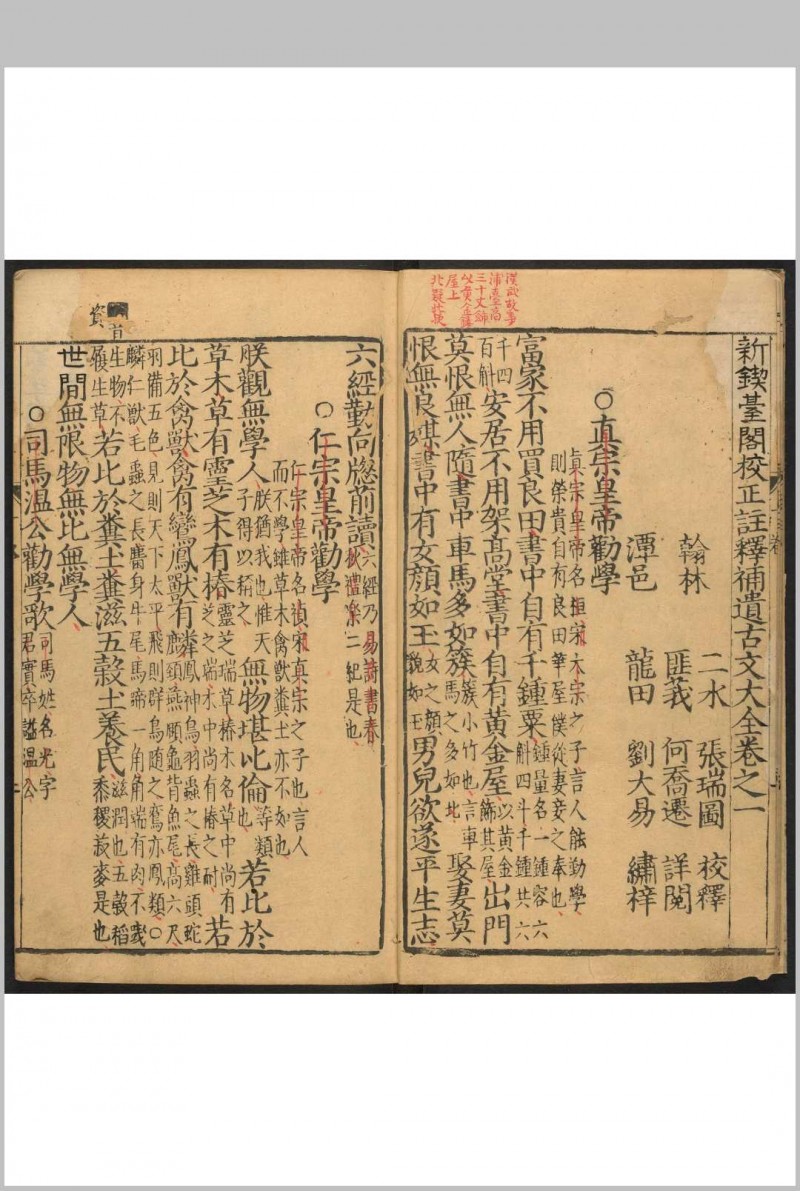 新鍥臺閣校正註釋補遺古文大全卷之一
翰林 二水 張瑞圖 校釋
匪莪 何喬遷 詳閱
潭邑 龍田 劉大易 繡梓
○真宗皇帝勸學
真宗皇帝名恒宋太宗之子言人能勤學
則榮貴自有良田華屋僕從妻妾之奉也
富家不用買良田書中自有千鍾粟鍾量名一鍾容六斛四斗千鍾共六
千四百斛安居不用架高堂書中自有黃金屋以黃金篩其屋出門
莫恨無人隨書中車馬多如簇簇小竹也言車馬之多如此娶妻莫
恨無良媒書中有女顏如玉女之顏貌如玉男兒欲遂平生志
六經勤向窓前讀六經乃易詩書春秋禮樂二紀是也
○仁宗皇帝勸學
仁宗皇帝名禎宋真宗之子也言人
而不學雖草木禽獸糞土亦不如也
朕觀無學人朕猶我也惟天子得以稱之無物堪比倫等類也若比於
草木草有靈芝木有椿靈芝瑞草椿木名草中尚有芝之瑞木中尚有椿之耐若
比於禽獸禽有鸞鳳獸有麟鳳神鳥羽蟲之長雞頭蛇頸燕頷龜背魚尾高六尺
羽備五色見則天下太平飛則群鳥隨之鸞亦鳳類○
麟仁獸毛蟲之長麕身牛尾馬蹄一角角端有肉不踐
生物不履生草若比於糞土糞滋五穀土養民滋潤也五穀稻黍稷菽麥是也
世間無限物無比無學人
○司馬溫公勸學歌司馬姓名光字君實卒謚溫公
漢武故事
三十丈飾
以黃金
屋上
資
首